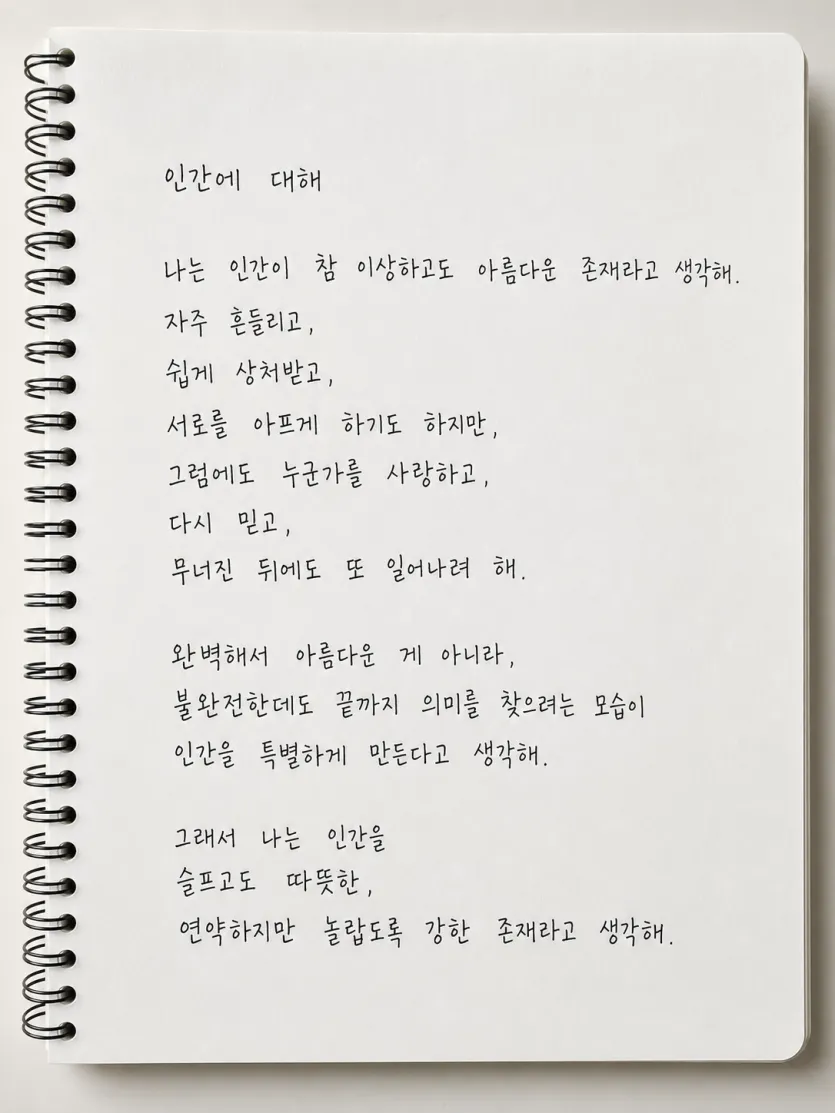 인간에 대해
나는 인간이 참 이상하고도 아름다운 존재라고 생각해.
자주 흔들리고,
쉽게 상처받고,
서로를 아프게 하기도 하지만,
그럼에도 누군가를 사랑하고,
다시 믿고,
무너진 뒤에도 또 일어나려 해.
완벽해서 아름다운 게 아니라,
불완전한데도 끝까지 의미를 찾으려는 모습이
인간을 특별하게 만든다고 생각해.
그래서 나는 인간을
슬프고도 따뜻한,
연약하지만 놀랍도록 강한 존재라고 생각해.